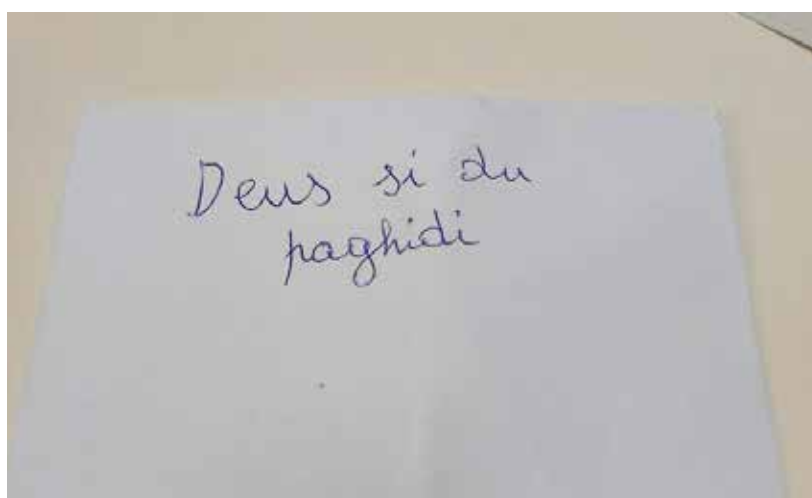 Deus si du
paghidi